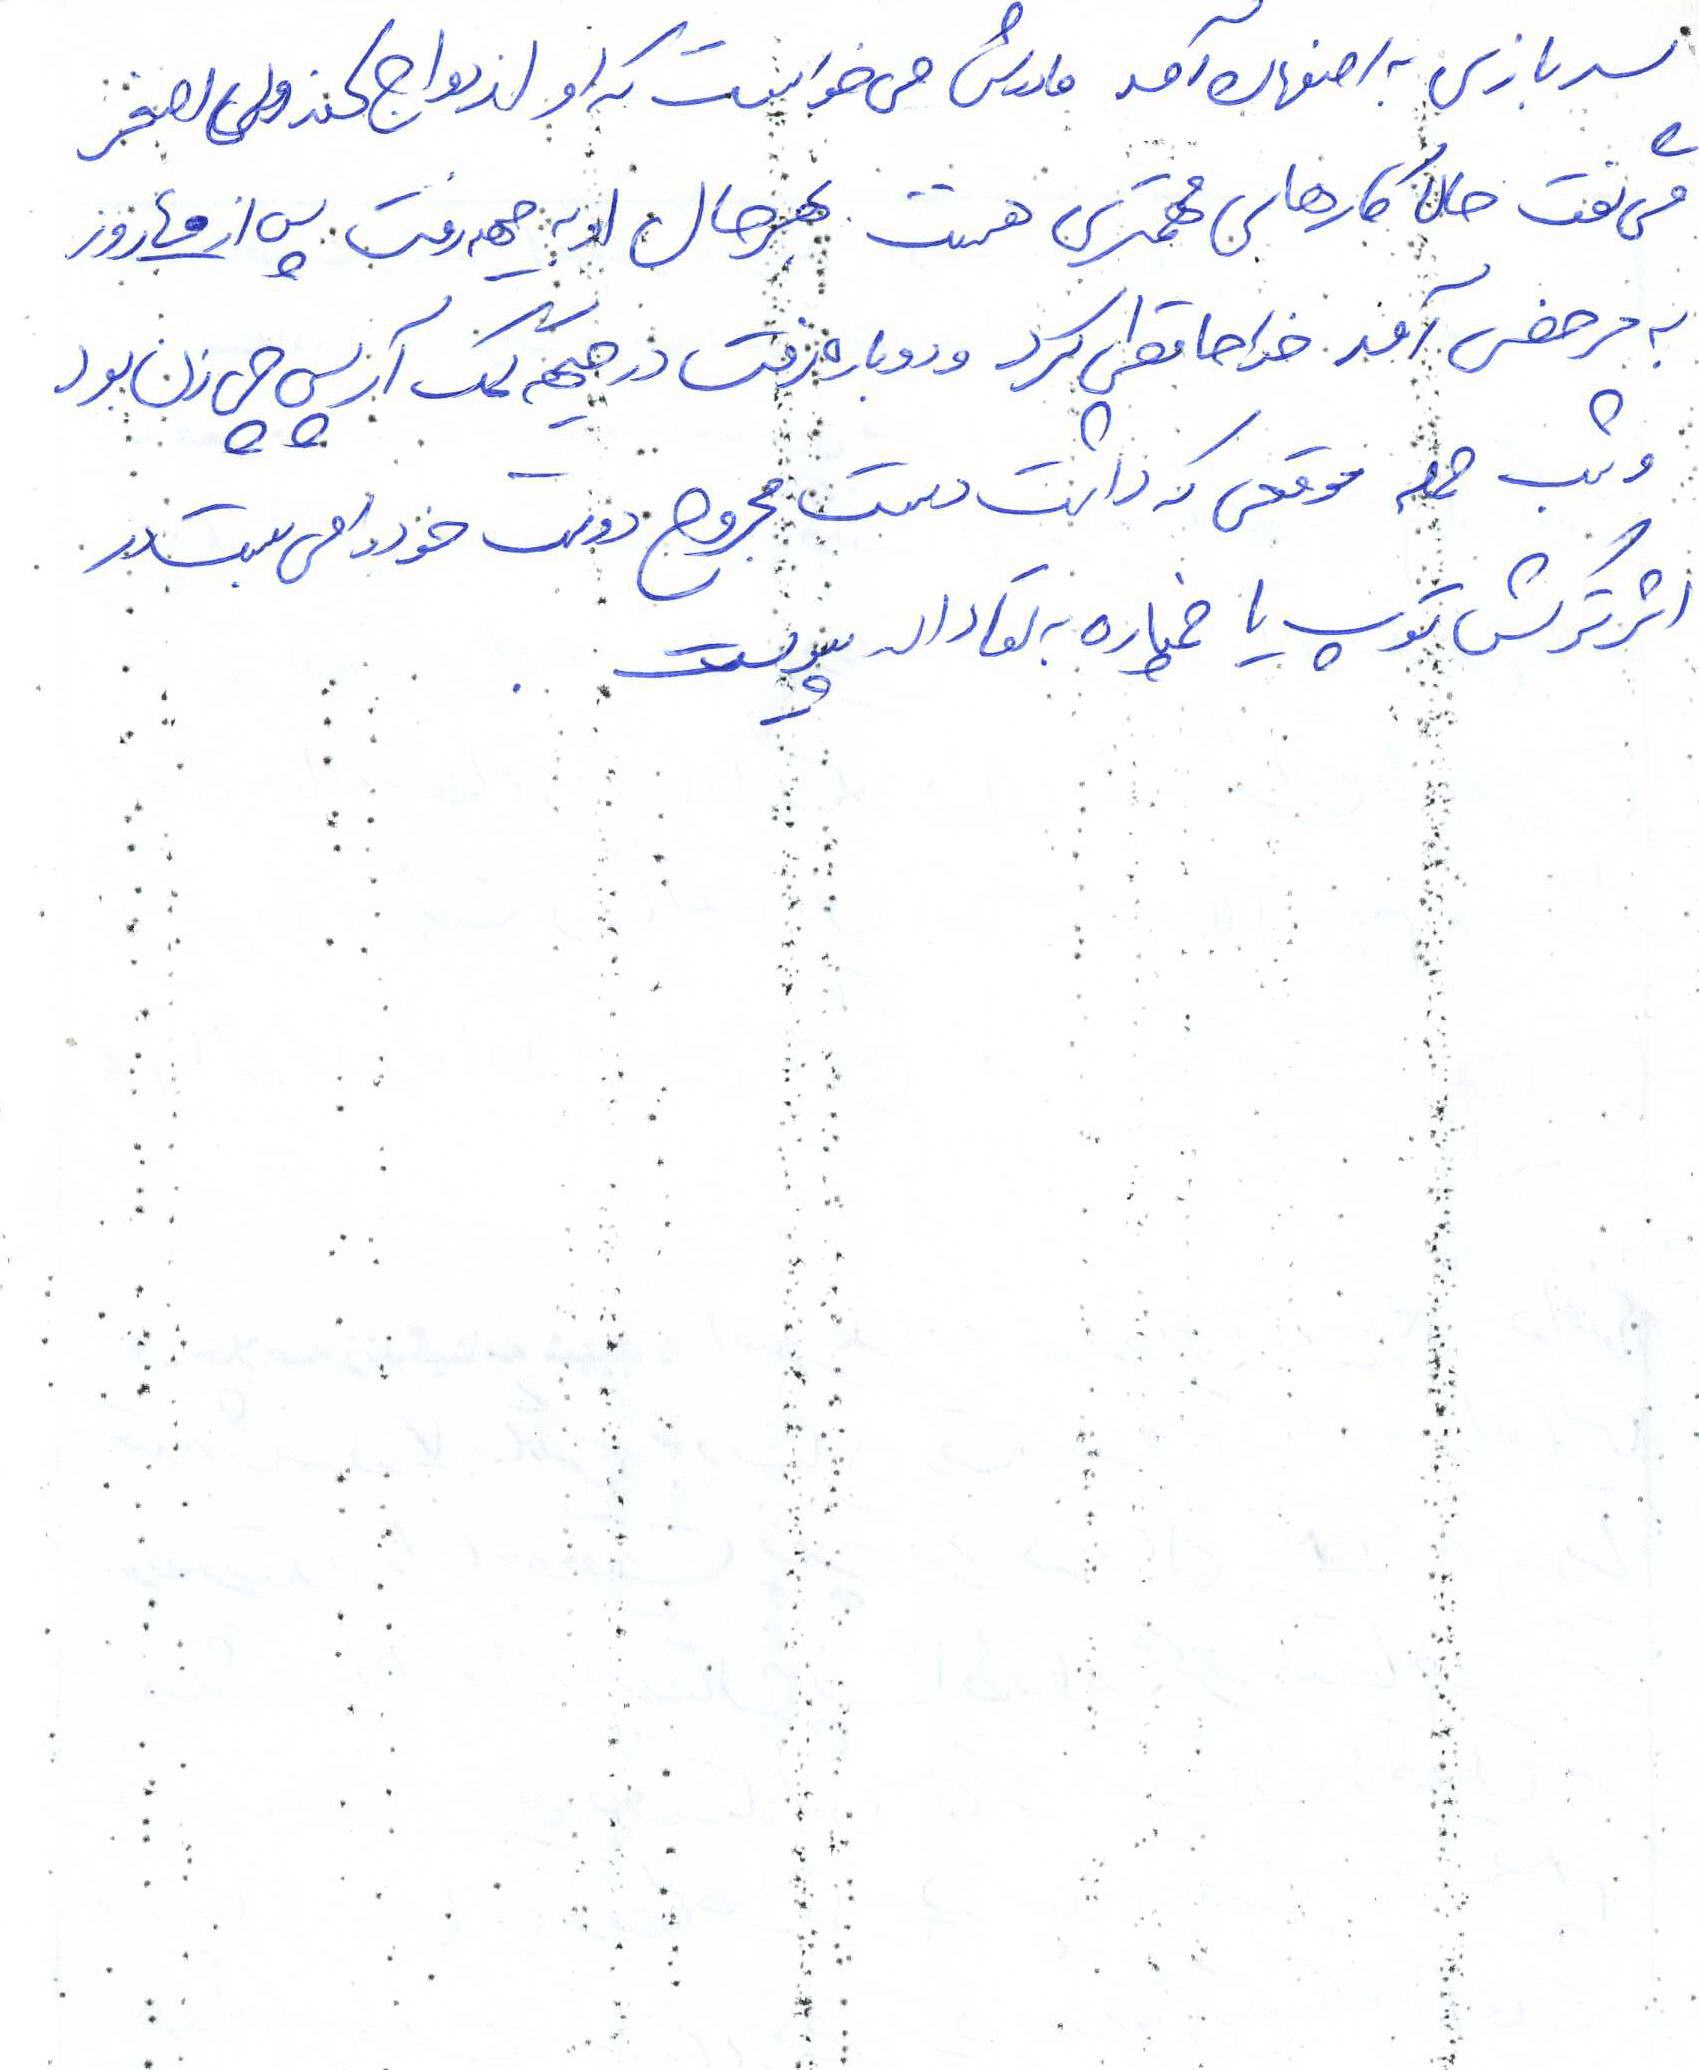 سربازی به اصفهان آمد مادرش می خواست که او ازدواج کند ولی اصغر
می گفت حالا کارهای مهمتری هست بهرحال او به جبهه رفت پس از روز
به مرخصی آمد خداحافظی کرد و دوباره رفت در جبهه کمک آر پی چی زن بود
و شب حمله موقعی که داشت دست مجروح دوست خود را می بست در
اثر ترکش توپ یا خمپاره به لقاء الله پیوست .